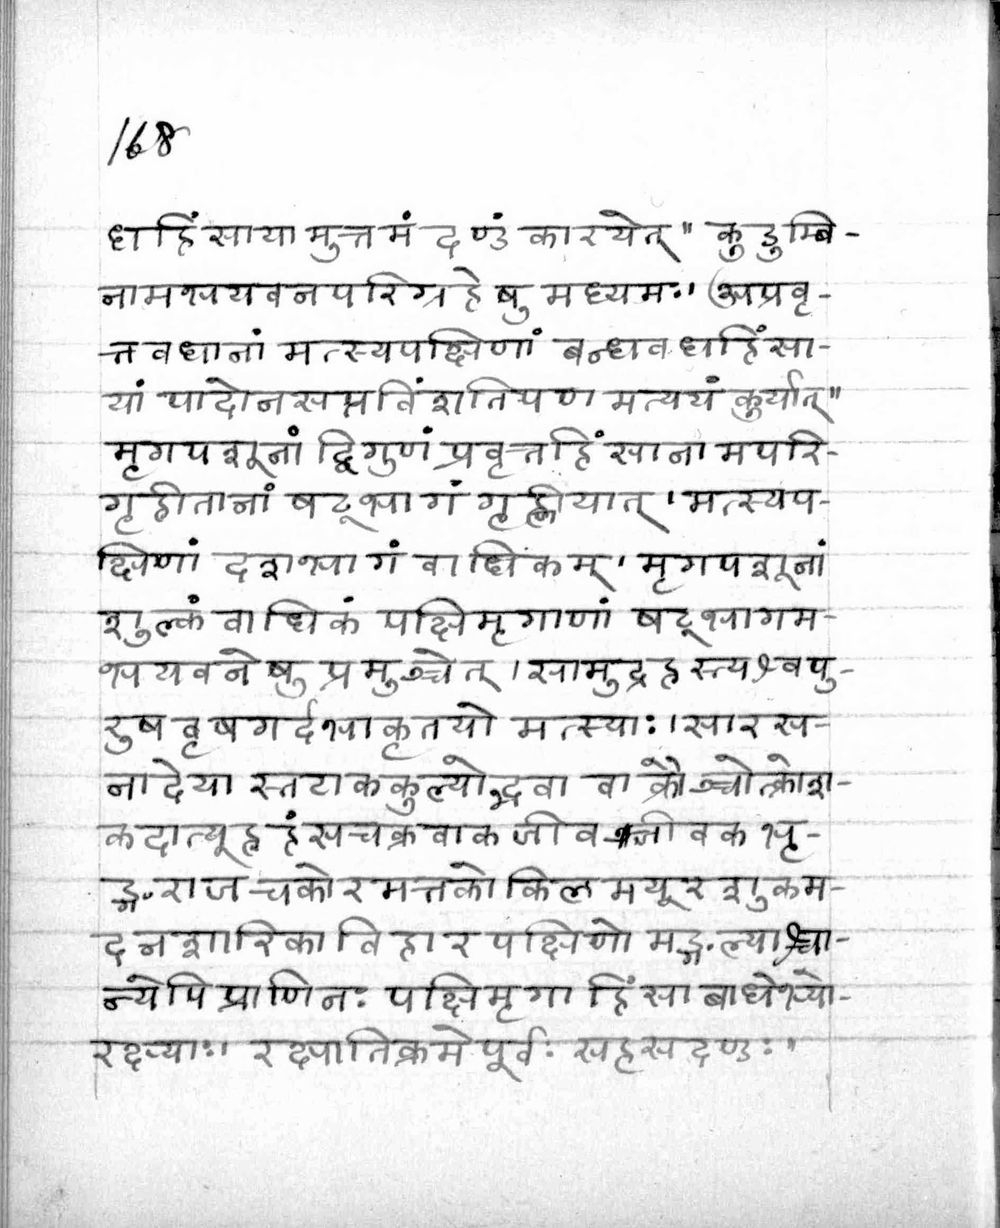 168
धहिंसायामुत्तमं दण्डं कारयेत्" कुडुम्बि-
नामभयवनपरिग्रहेषु मध्यमः। अप्रवृ-
त्तवधानां मत्स्यपक्षिणां बन्धवधहिंसा-
यां पादोनसप्तविंशतिपणमत्ययं कुर्यात्"
मृगपशूनां द्विगुणं प्रवृत्तहिंसानामपरि-
गृहीतानां षट्भागं गृह्णीयात्। मत्स्यप-
क्षिणां दशभागं वाधिकम्। मृगपशूनां
शुल्कं वाधिकं पक्षिमृगाणां षट्भागम-
भयवनेषु प्रमुञ्चेत्। सामुद्रहस्त्यश्वपु-
रुषवृषगर्दभाकृतयो मत्स्याः। सारस-
नादेया स्तटाककुल्योद्भवा वा क्रौञ्चोत्क्रोश-
कदात्यूहहंसचक्रवाकजीवञ्जीवकभृ-
ङ्गराजचकोरमत्तकोकिलमयूरशुकम-
दनशारिकाविहारपक्षिणो मङ्गल्याश्चा-
न्येपि प्राणिनः पक्षिमृगा हिंसाबाधेभ्यो-
रक्ष्याः। रक्षातिक्रमे पूर्वः सहसदण्डः।